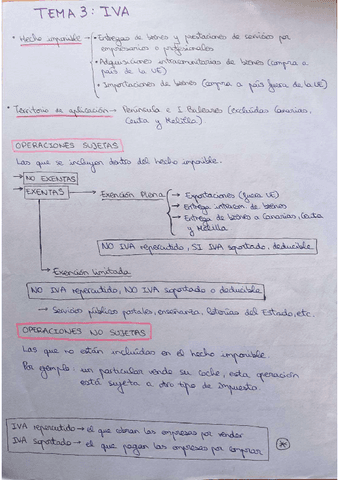 TEMA 3: IVA
• Hecho imponible → • Entregas de bienes y prestaciones de servicios por
empresarios o profesionales
• Adquisiciones intracomunitarias de bienes (compra a
país de la UE)
• Importaciones de bienes (compra a país fuera de la UE)
• Territorio de aplicación → Península e I. Baleares (excluidas Canarias,
Ceuta y Melilla).
OPERACIONES SUJETAS
Las que se incluyen dentro del hecho imponible.
→ NO EXENTAS
→ EXENTAS
→ Exención Plena
→ Exportaciones (fuera UE)
→ Entrega intracom. de bienes
→ Entrega de bienes a Canarias, Ceuta
y Melilla
NO IVA repercutido, SI IVA soportado, deducible
→ Exención limitada
NO IVA repercutido, NO IVA soportado o deducible
→ Servicios públicos postales, enseñanza, loterías del Estado, etc.
OPERACIONES NO SUJETAS
Las que no están incluidas en el hecho imponible.
Por ejemplo: un particular vende su coche, esta operación
está sujeta a otro tipo de impuesto.
IVA repercutido → el que cobran las empresas por vender
IVA soportado → el que pagan las empresas por comprar